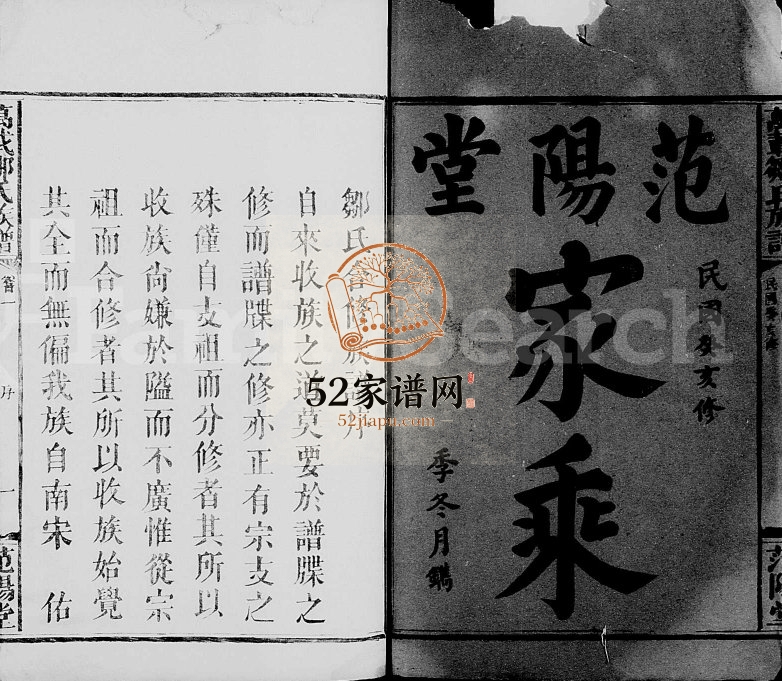 范陽堂
民國癸亥修
家乘
季冬月鐫
鄒氏合修族譜序
自來收族之道莫要於譜牒之
修而譜牒之修亦正有宗支之
殊僅自支祖而分修者其所以
收族尚嫌於隘而不廣惟從宗
祖而合修者其所以收族始覺
其全而無偏我族自南宋 佑
萬載鄒氏族譜
卷首
序
一
范陽堂
52家谱网
52jiapu.com
FamilySearch